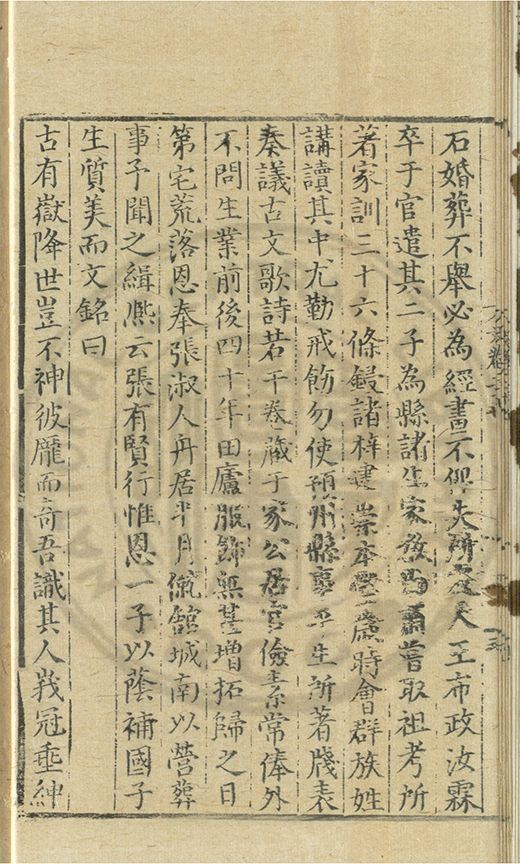 石婚葬不舉必為經畫不俾失所從夫王布政汝霖
卒于官遣其二子為縣諸生家教嚴肅嘗取祖考所
著家訓三十六條鋟諸梓建崇本堂歲時會群族姓
講讀其中尤勤戒飭勿使預州縣事平生所著牋表
奏議古文歌詩若干卷藏于家公居官儉素常俸外
不問生業前後四十年田廬服飾無甚增拓歸之日
第宅荒落恩奉張淑人再居半月僦館城南以營葬
事予聞之緝熈云張有賢行惟恩一子以蔭補國子
生質美而文銘曰
古有嶽降世豈不神彼龐而奇吾識其人峩冠垂紳